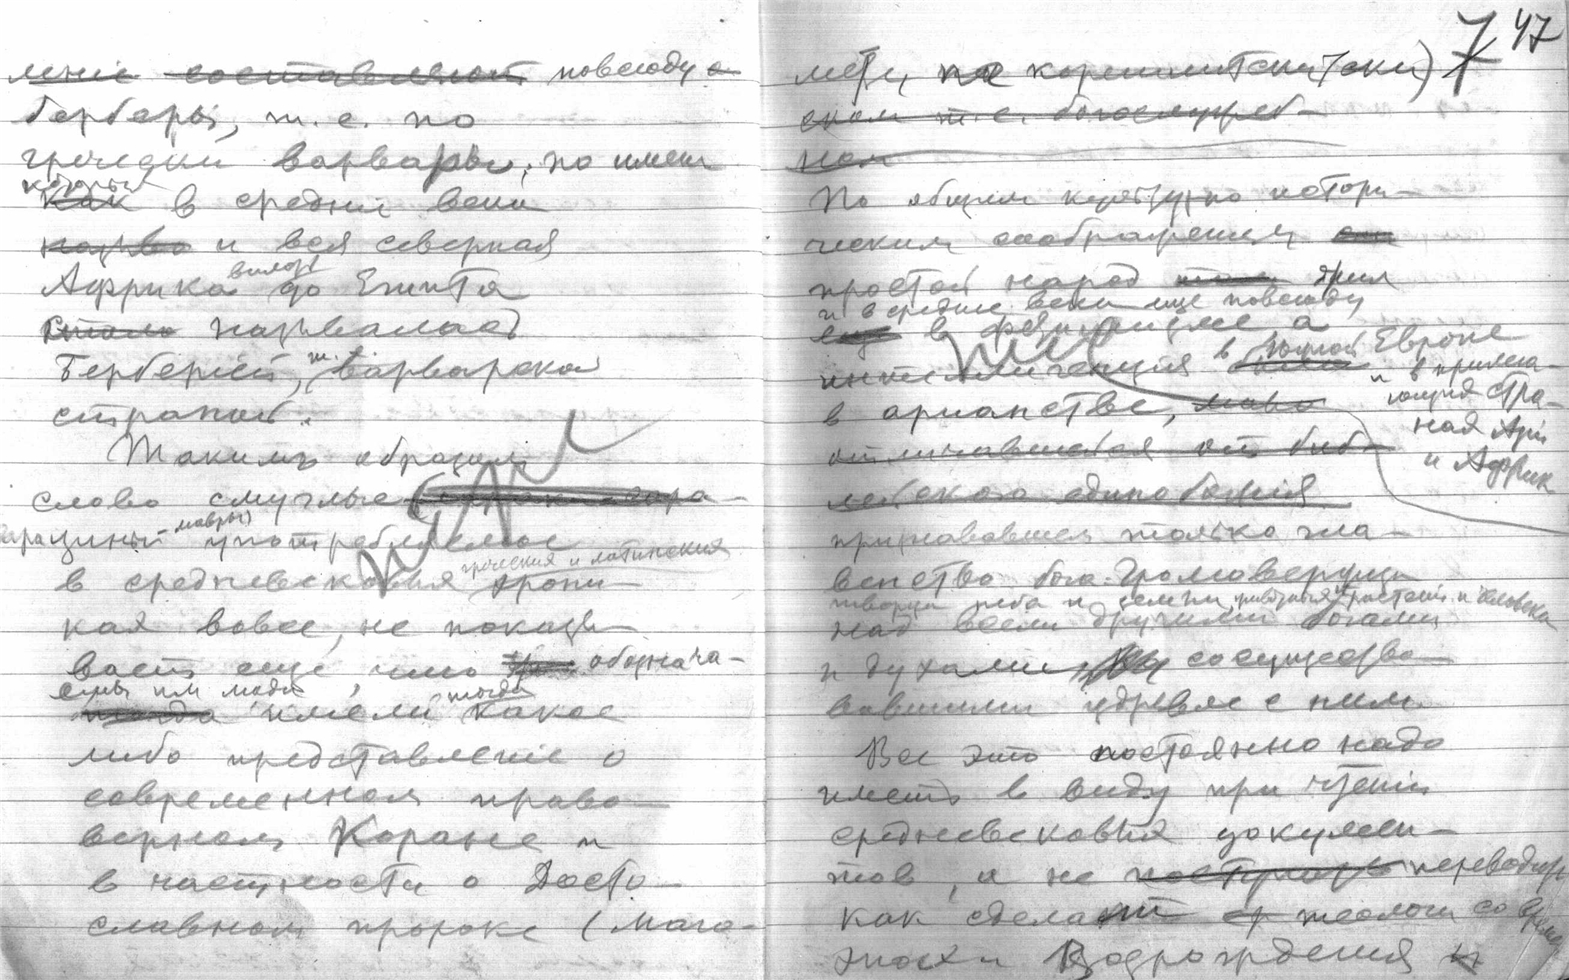 ление составляют повсюду
берберы, т. е. по
гречески варвары, по имени
которых
как в средние века
и вся северная
Африка вплоть до Египта
стала называлась
Берберией, т. е. варварской
страной.
Таким образом
слово смуглые
сарацины - мавры) употребляемое
греческия и латинския
в средневековых хрони-
ках вовсе, не показы-
вает еще, что обознача-
емые им люди, тогда
тогда имели какое
либо представление о
современном право-
верном Коране и
в частности о Досто-
славном пророке (Мага-
7 47
мете, по корешитски
ском т. е. богослужеб-
ном
По общим культурно истори-
ческим соображениям
простой народ жил
и в средние века еще повсюду
еще в фетишизме а
интеллигенция в южной Европе
и в прилега-
ющих стра-
нах Азии
и Африки
в арианстве,
отличавшегося от биб-
лейского единобожия
признававшем только гла-
венство бога-Громовержца
творца неба и земли, животных, растений и человека
над всеми другими богами
и духами, сосущество-
вавшими издревле с ним.
Все это постоянно надо
иметь в виду при чтении
средневековых докумен-
тов, и не переводить
как сделали теологи со времен
эпохи Возрождения и